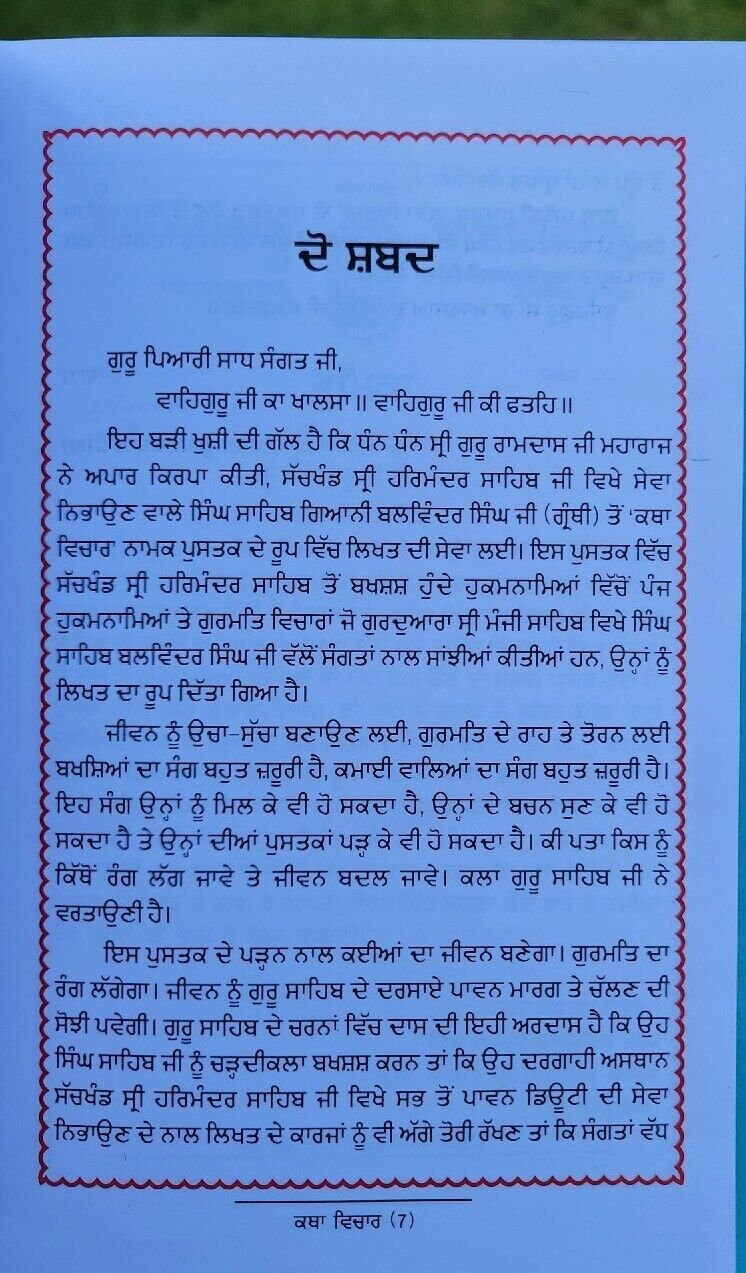 ਦੋ ਸ਼ਬਦ
ਗੁਰੂ ਪਿਆਰੀ ਸਾਧ ਸੰਗਤ ਜੀ,
ਵਾਹਿਗੁਰੂ ਜੀ ਕਾ ਖਾਲਸਾ॥ ਵਾਹਿਗੁਰੂ ਜੀ ਕੀ ਫਤਹਿ॥
ਇਹ ਬੜੀ ਖੁਸ਼ੀ ਦੀ ਗੱਲ ਹੈ ਕਿ ਧੰਨ ਧੰਨ ਸ੍ਰੀ ਗੁਰੂ ਰਾਮਦਾਸ ਜੀ ਮਹਾਰਾਜ
ਨੇ ਅਪਾਰ ਕਿਰਪਾ ਕੀਤੀ, ਸੱਚਖੰਡ ਸ੍ਰੀ ਹਰਿਮੰਦਰ ਸਾਹਿਬ ਜੀ ਵਿਖੇ ਸੇਵਾ
ਨਿਭਾਉਣ ਵਾਲੇ ਸਿੰਘ ਸਾਹਿਬ ਗਿਆਨੀ ਬਲਵਿੰਦਰ ਸਿੰਘ ਜੀ (ਗ੍ਰੰਥੀ) ਤੋਂ 'ਕਥਾ
ਵਿਚਾਰ' ਨਾਮਕ ਪੁਸਤਕ ਦੇ ਰੂਪ ਵਿੱਚ ਲਿਖਤ ਦੀ ਸੇਵਾ ਲਈ। ਇਸ ਪੁਸਤਕ ਵਿੱਚ
ਸੱਚਖੰਡ ਸ੍ਰੀ ਹਰਿਮੰਦਰ ਸਾਹਿਬ ਤੋਂ ਬਖਸ਼ਸ਼ ਹੁੰਦੇ ਹੁਕਮਨਾਮਿਆਂ ਵਿੱਚੋਂ ਪੰਜ
ਹੁਕਮਨਾਮਿਆਂ ਤੇ ਗੁਰਮਤਿ ਵਿਚਾਰਾਂ ਜੋ ਗੁਰਦੁਆਰਾ ਸ੍ਰੀ ਮੰਜੀ ਸਾਹਿਬ ਵਿਖੇ ਸਿੰਘ
ਸਾਹਿਬ ਬਲਵਿੰਦਰ ਸਿੰਘ ਜੀ ਵੱਲੋਂ ਸੰਗਤਾਂ ਨਾਲ ਸਾਂਝੀਆਂ ਕੀਤੀਆਂ ਹਨ, ਉਨ੍ਹਾਂ ਨੂੰ
ਲਿਖਤ ਦਾ ਰੂਪ ਦਿੱਤਾ ਗਿਆ ਹੈ।
ਜੀਵਨ ਨੂੰ ਉਚਾ-ਸੁੱਚਾ ਬਣਾਉਣ ਲਈ, ਗੁਰਮਤਿ ਦੇ ਰਾਹ ਤੇ ਤੋਰਨ ਲਈ
ਬਖਸ਼ਿਆਂ ਦਾ ਸੰਗ ਬਹੁਤ ਜ਼ਰੂਰੀ ਹੈ, ਕਮਾਈ ਵਾਲਿਆਂ ਦਾ ਸੰਗ ਬਹੁਤ ਜ਼ਰੂਰੀ ਹੈ।
ਇਹ ਸੰਗ ਉਨ੍ਹਾਂ ਨੂੰ ਮਿਲ ਕੇ ਵੀ ਹੋ ਸਕਦਾ ਹੈ, ਉਨ੍ਹਾਂ ਦੇ ਬਚਨ ਸੁਣ ਕੇ ਵੀ ਹੋ
ਸਕਦਾ ਹੈ ਤੇ ਉਨ੍ਹਾਂ ਦੀਆਂ ਪੁਸਤਕਾਂ ਪੜ੍ਹ ਕੇ ਵੀ ਹੋ ਸਕਦਾ ਹੈ। ਕੀ ਪਤਾ ਕਿਸ ਨੂੰ
ਕਿੱਥੋਂ ਰੰਗ ਲੱਗ ਜਾਵੇ ਤੇ ਜੀਵਨ ਬਦਲ ਜਾਵੇ। ਕਲਾ ਗੁਰੂ ਸਾਹਿਬ ਜੀ ਨੇ
ਵਰਤਾਉਣੀ ਹੈ।
ਇਸ ਪੁਸਤਕ ਦੇ ਪੜ੍ਹਨ ਨਾਲ ਕਈਆਂ ਦਾ ਜੀਵਨ ਬਣੇਗਾ। ਗੁਰਮਤਿ ਦਾ
ਰੰਗ ਲੱਗੇਗਾ। ਜੀਵਨ ਨੂੰ ਗੁਰੂ ਸਾਹਿਬ ਦੇ ਦਰਸਾਏ ਪਾਵਨ ਮਾਰਗ ਤੇ ਚੱਲਣ ਦੀ
ਸੋਝੀ ਪਵੇਗੀ। ਗੁਰੂ ਸਾਹਿਬ ਦੇ ਚਰਨਾਂ ਵਿੱਚ ਦਾਸ ਦੀ ਇਹੀ ਅਰਦਾਸ ਹੈ ਕਿ ਉਹ
ਸਿੰਘ ਸਾਹਿਬ ਜੀ ਨੂੰ ਚੜ੍ਹਦੀਕਲਾ ਬਖਸ਼ਸ਼ ਕਰਨ ਤਾਂ ਕਿ ਉਹ ਦਰਗਾਹੀ ਅਸਥਾਨ
ਸੱਚਖੰਡ ਸ੍ਰੀ ਹਰਿਮੰਦਰ ਸਾਹਿਬ ਜੀ ਵਿਖੇ ਸਭ ਤੋਂ ਪਾਵਨ ਡਿਊਟੀ ਦੀ ਸੇਵਾ
ਨਿਭਾਉਣ ਦੇ ਨਾਲ ਲਿਖਤ ਦੇ ਕਾਰਜਾਂ ਨੂੰ ਵੀ ਅੱਗੇ ਤੋਰੀ ਰੱਖਣ ਤਾਂ ਕਿ ਸੰਗਤਾਂ ਵੱਧ
ਕਥਾ ਵਿਚਾਰ (7)